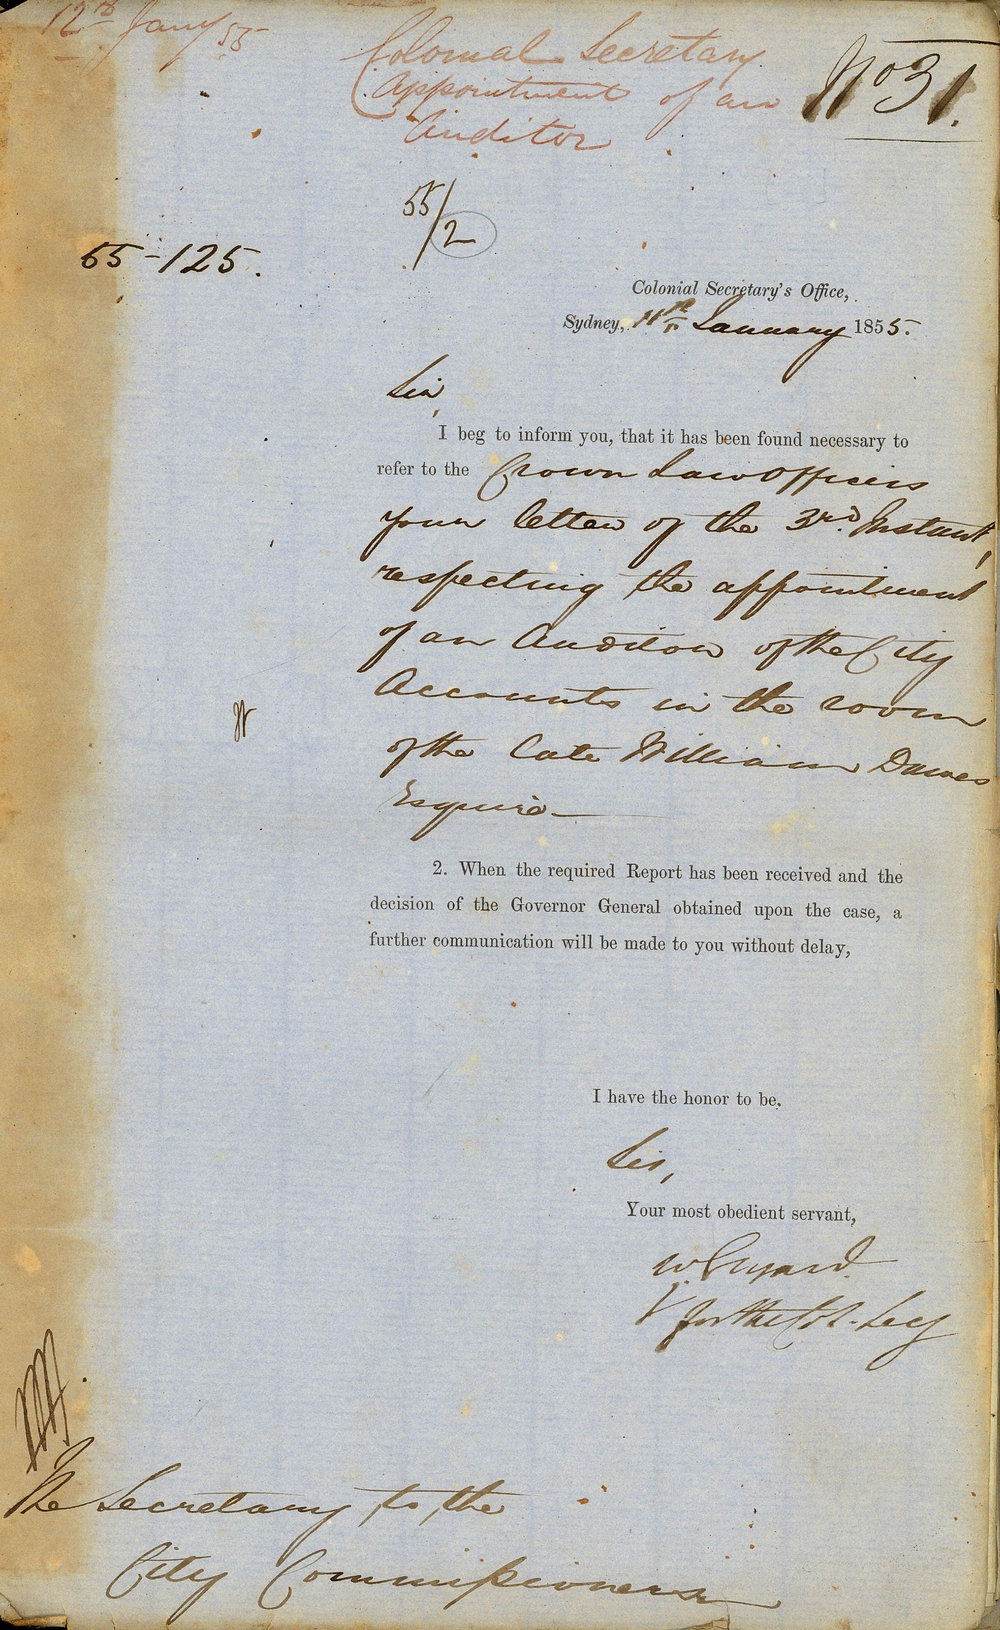 12th Jany 55
Colonial Secretary
Appointment of an
Auditor
No 31.
55/2
55-125.
Colonial Secretary's Office,
Sydney, 11th January 1855.
Sir,
I beg to inform you, that it has been found necessary to
refer to the Crown Law Officers
your letter of the 3rd. Instant,
respecting the appointment
of an Auditor of the City
Accounts in the room
of the late William Dawes
Esquire—
2. When the required Report has been received and the
decision of the Governor General obtained upon the case, a
further communication will be made to you without delay,
I have the honor to be,
Sir,
Your most obedient servant,
W Elyard
for the Col. Secy
The Secretary to the
City Commissioners